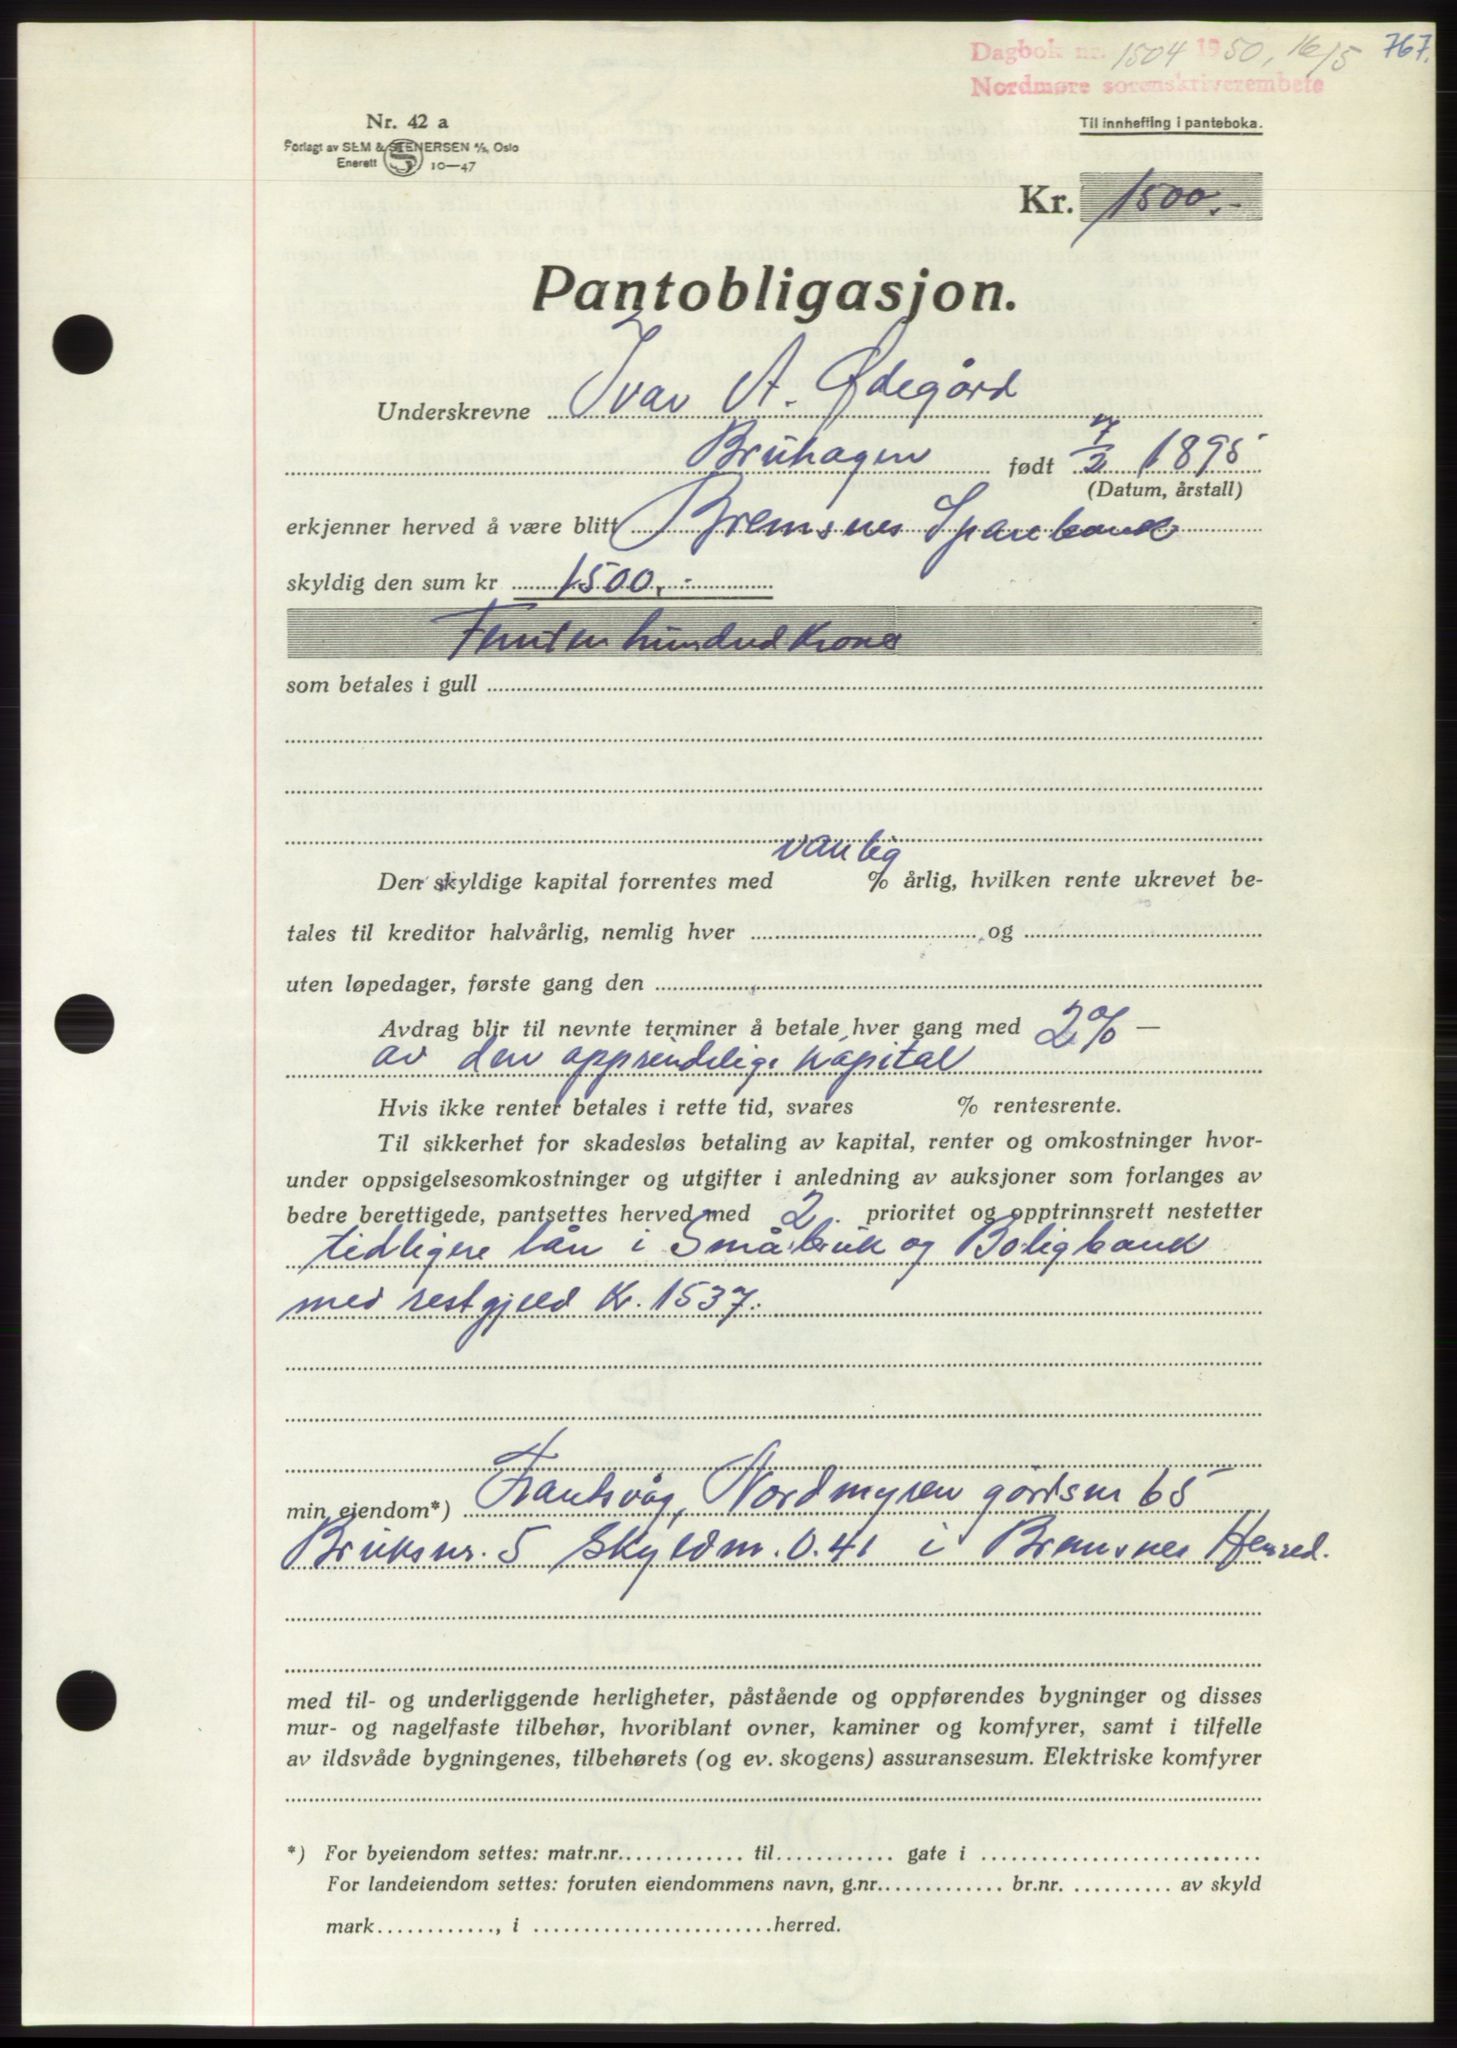 Dagbok nr. 1504 1950, 16/5 767.
Nordmøre sorenskriverembete
Nr. 42 a
Til innhefting i panteboka.
Forlagt av SEM & STENERSEN A/S, Oslo
Enerett S 10—47
Kr. 1500.-
Pantobligasjon.
Underskrevne Ivar A. Ødegård
Bruhagen født 7/2 1895
(Datum, årstall)
erkjenner herved å være blitt Bremsnes Sparebank
skyldig den sum kr 1500.-
Femten hundred Kroner
som betales i gull
vanlig
Den skyldige kapital forrentes med % årlig, hvilken rente ukrevet be-
tales til kreditor halvårlig, nemlig hver og
uten løpedager, første gang den
Avdrag blir til nevnte terminer å betale hver gang med 2% —
av den opprindelige kapital
Hvis ikke renter betales i rette tid, svares % rentesrente.
Til sikkerhet for skadesløs betaling av kapital, renter og omkostninger hvor-
under oppsigelsesomkostninger og utgifter i anledning av auksjoner som forlanges av
bedre berettigede, pantsettes herved med 2. prioritet og opptrinnsrett nestetter
tidligere lån i Småbruk og Boligbank
med restgjeld Kr. 1537.
min eiendom*) Nordmyren gårdsnr 65
Bruksnr. 5 Skyldm. 0.41 i Bremsnes Herred.
med til- og underliggende herligheter, påstående og oppførendes bygninger og disses
mur- og nagelfaste tilbehør, hvoriblant ovner, kaminer og komfyrer, samt i tilfelle
av ildsvåde bygningenes, tilbehørets (og ev. skogens) assuransesum. Elektriske komfyrer
*) For byeiendom settes: matr.nr. til gate i
For landeiendom settes: foruten eiendommens navn, g.nr. br.nr. av skyld
mark , i herred.